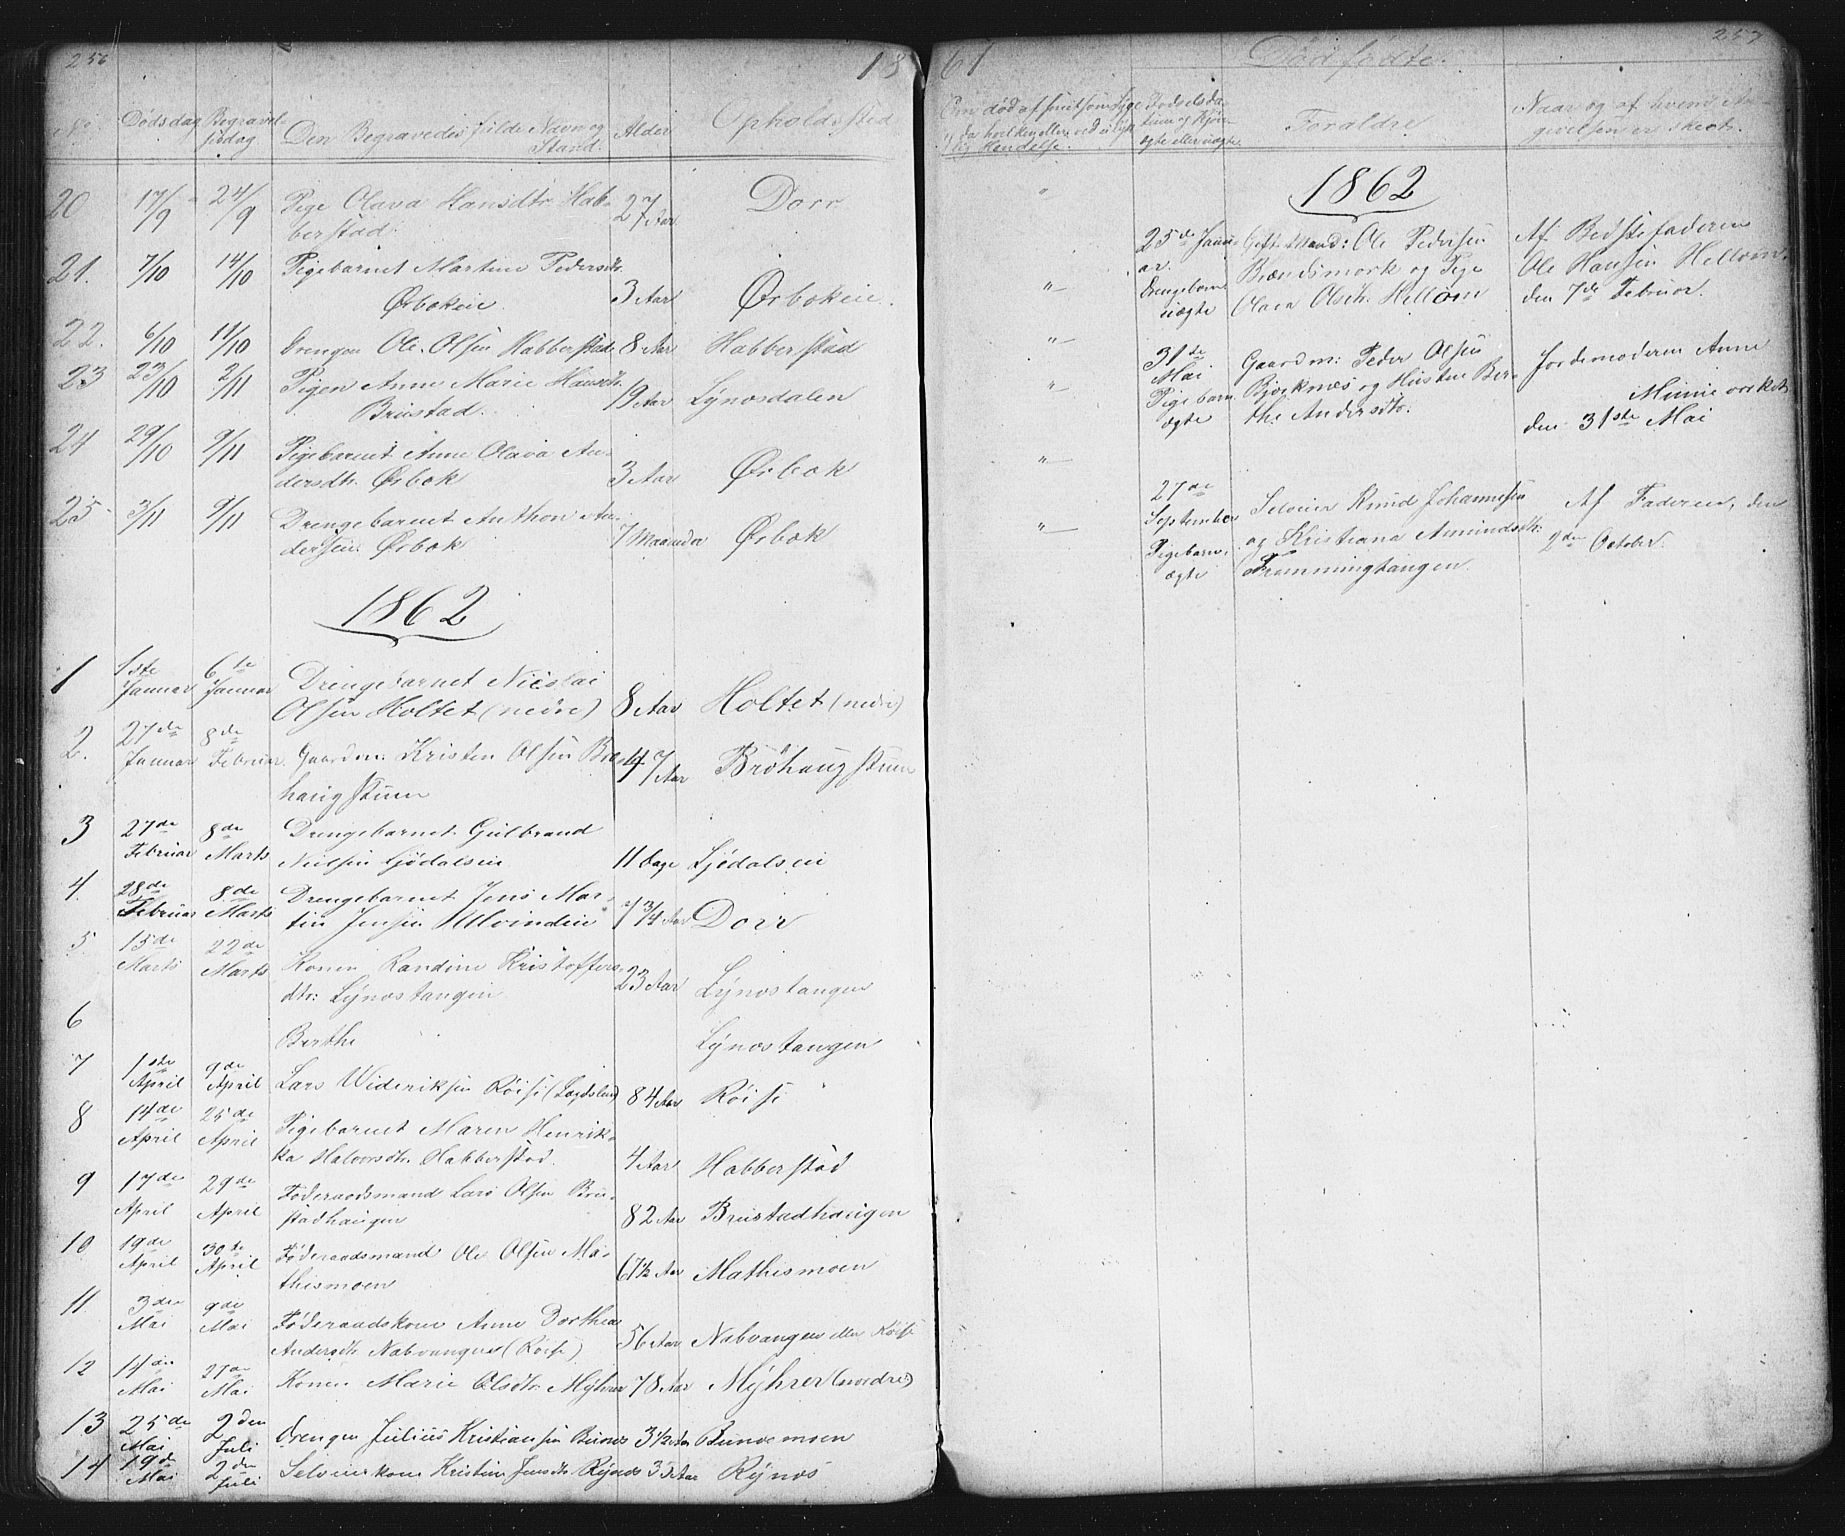 256
1861
257
No
Dødsdag
Begravelsesdag
Den Begravedes fulde Navn og
Stand.
Alder
Opholdssted
20 17/9 24/9 Pige Olava Hansdtr. Hab-
berstad. 27 Aar Dorr
21. 7/10 14/10 Pigebarnet Martine Pedersdtr.
Ørbokeie 3 Aar Ørbokeie.
22. 6/10 11/10 Drengen Ole Olsen Habberstad 8 Aar Habberstad
23 23/10 2/11 Pigen Anne Marie Hansdtr.
Brustad. 19 Aar Lynosdalen
24 29/10 9/11 Pigebarnet Anne Olava An-
dersdtr. Ørbok 3 Aar Ørbok
25. 3/11 9/11 Drengebarnet Anthon An-
dersen Ørbok 7 Maaneder Ørbok
1862
1 1ste Januar 6te Januar Drengebarnet Nicolai
Olsen Holtet (nedre) 8 Aar Holtet (nedre)
2. 27de Januar 8de Februar Gaardm. Kristen Olsen Brø-
haugstuen 47 Aar Brøhaugstuen
3 27de Februar 8de Marts Drengebarnet Gulbrand
Nielsen Sjødalseie 11 Dage Sjødalseie
4. 28de Februar 8de Marts Drengebarnet Jens Mar-
tin Jensen Ulvindeie 1 3/4 Aar Dorr
5 15de Marts 22de Marts Konen Randine Kristoffers-
dtr: Lynostangen 23 Aar Lynostangen
6
Berthe Lynostangen
7 1ste April 9de April Lars Wideriksen Röise (Lægdslem) 84 Aar Röise
8 14de April 25de April Pigebarnet Maren Henrik-
ka Halvorsdtr. Habberstad. 4 Aar Habberstad
9 17de April 29de April Föderaadsmand Lars Olsen Bru-
stadhaugen 82 Aar Brustadhaugen
10 19de April 30te April Föderaadsmand Ole Olsen Ma-
thismoen 67 1/2 Aar Mathismoen
11. 3die Mai 9de Mai Föderaadskone Anne Dorthea
Andersdtr. Nabvangen (Röise) 56 Aar Nabvangen eller Röise
12 14de Mai 27de Mai Konen Marie Olsdtr. Myhrer 78 Aar Myhrer (nordre)
13 25de Mai 2den Juli Drengen Julius Kristiansen Bundes 3 1/2 Aar Bundemoen
14 19de Mai 2den Juli Selveierkone Kristine Jensdtr. Rynes 35 Aar Rynos
Dødfødte.
Om død af smitsom Syge-
Fødselsda-
tum og Kjøn
ægte eller uægte.
Foraldre
Naar og af hvem An-
givelsen er skeet.
1862
25de Janu-
ar.
Drengebarn
uægte
Gift Mand: Ole Pedersen
Brændsmork og Pige
Olava Olsdtr. Hellom
Af Bedstefaderen
Ole Hansen Hellom.
den 7de Februar.
31te
Mai
Pigebarn
ægte
Gaardm: Peder Olsen
Bjørknæs og Hustru Ber-
the Andersdtr.
Jordemoderen Anne
Minnie
den 31ste Mai
27de
September
Pigebarn.
ægte
Selveier Knud Johannesen
og Kristiana Amundsdtr.
Fremmingtangen.
Af Faderen, den
2den October.